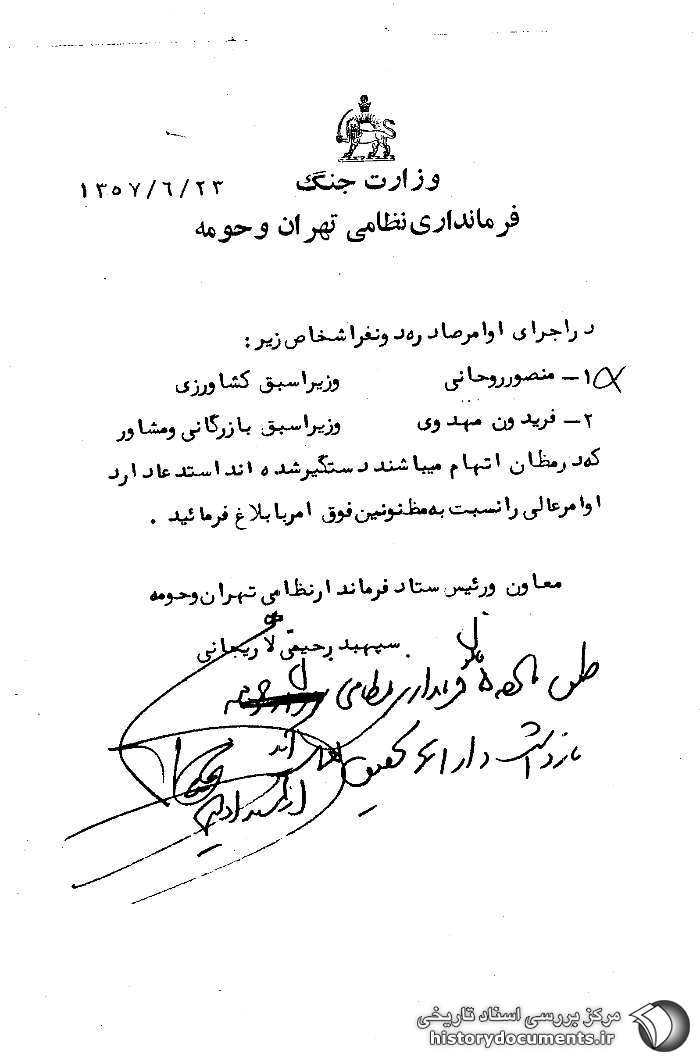 وزارت جنگ
۱۳۵۷/۶/۲۳
فرمانداری نظامی تهران وحومه
دراجرای اوامرصادره دونفراشخاص زیر:
۱ـ منصورروحانی وزیراسبق کشاورزی
۲ـ فریدون مهدوی وزیراسبق بازرگانی ومشاور
که درمظان اتهام میباشند دستگیرشده اند استدعا دارد
اوامرعالی رانسبت به مظنونین فوق امربابلاغ فرمائید .
معاون ورئیس ستاد فرماندارنظامی تهران وحومه
سپهبد رحیمی لاریجانی
طبق ماده ۵ فرمانداری نظامی
بازداشت
مرکز بررسی اسناد تاریخی
historydocuments.ir